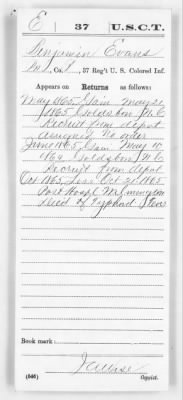 E 37 U.S.C.T.
Benjamin Evans
Pvt, Co. I, 37 Reg't U. S. Colored Inf.
Appears on Returns as follows:
May 1865, Gain May 21
1865, Goldsboro N.C
Recruit from depot
assigned no order
June 1865, Gain May 10
1864, Goldsboro N.C
Recruit from depot
Oct 1865, Loss Oct 21 1865
Post Hospl Wilmington
Died of Typhoid Fever
Book mark:
(546) Copyist.